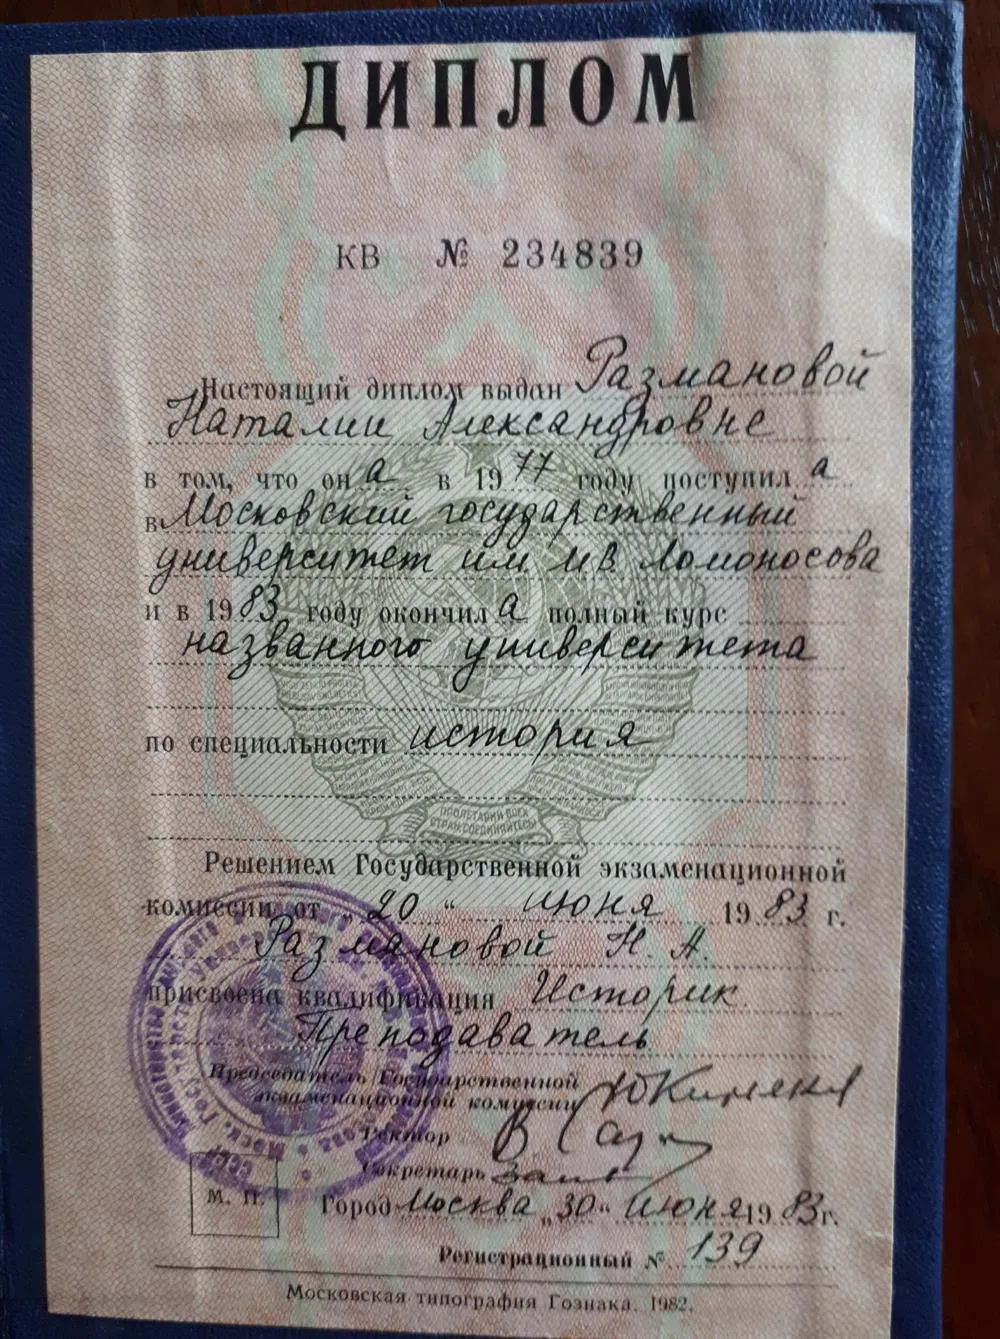 ДИПЛОМ
КВ № 234839
Настоящий диплом выдан Размановой
Наталии Александровне
в том, что он а в 19 77 году поступил а
в Московский государственный
университет им МВ Ломоносова
и в 19 83 году окончил а полный курс
названного университета
по специальности история
ПРОЛЕТАРИИ ВСЕХ
СТРАН, СОЕДИНЯЙТЕСЬ!
Решением Государственной экзаменационной
комиссии от „ 20 “ июня 19 83 г.
Размановой Н. А.
присвоена квалификация Историк.
Преподаватель
Председатель Государственной
экзаменационной комиссии
Ректор
Секретарь
М. П.
Город Москва „ 30 “ июня 19 83 г.
Регистрационный № 139
Московская типография Гознака. 1982.